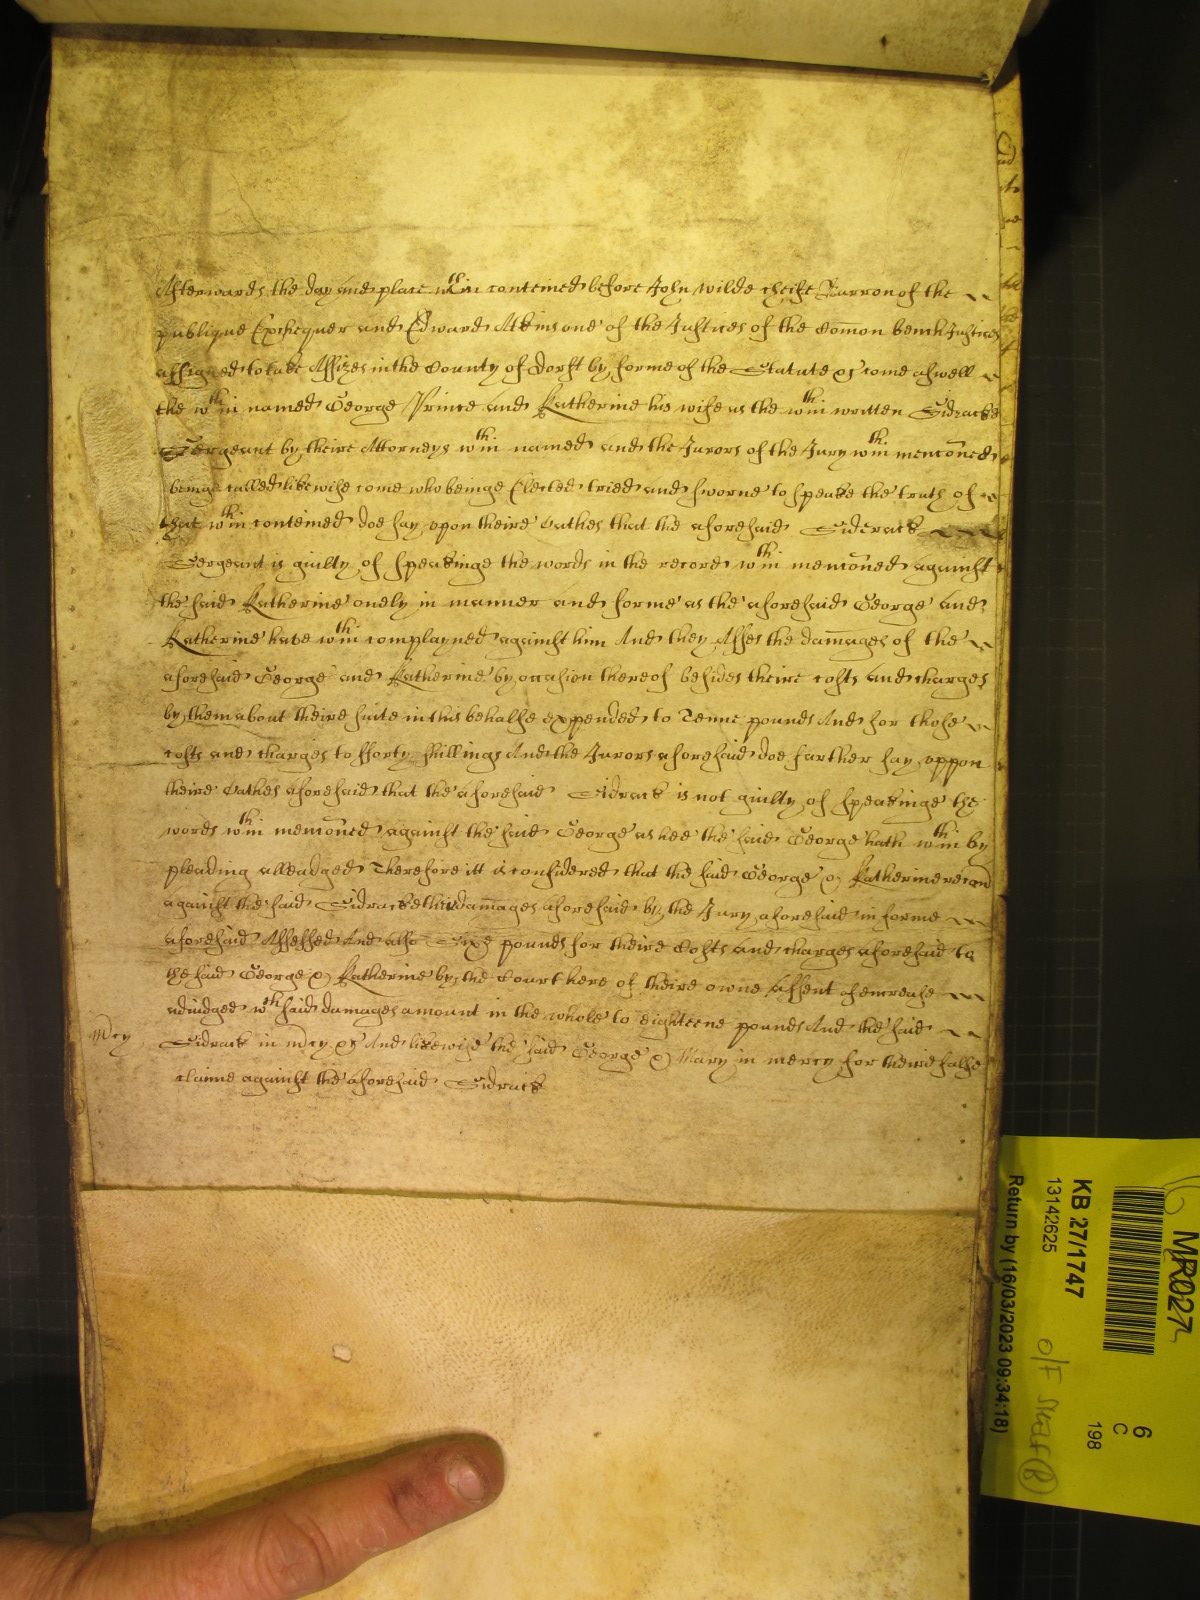 Afterwards the day and place wthin conteined before John Wilde cheife Barron of the
publique Exchequer and Edward Atkins one of the Justices of the Com̄on bench Justices
assigned to take Assizes in the County of Dorst by forme of the Statute &c come aswell
the wthin named George Prince and Katherine his wife as the wthin written Sidracke
Sergeant by theire Attorneys wthin named and the Jurors of the Jury wthin menc̄oned
beinge called likewise come who beinge Elected tried and sworne to speake the truth of
that wthin conteined doe say vpon theire Oathes that the aforesaid Sidrack
Sergeant is guilty of speakinge the words in the record wthin menc̄oned against
the said Katherine onely in manner and forme as the aforesaid George and
Katherine hate wthin complayned against him And they Asses the damages of the
aforesaid George and Katherine by occasion thereof besides theire costs and charges
by them about theire suite in this behalfe expended to Tenne pounds And for those
costs and charges to fforty shillings And the Jurors aforesaid doe farther say vppon
theire Oathes aforesaid that the aforesaid Sidrack is not guilty of speakinge the
words wthin menc̄oned against the said George as hee the said George hath wthin by
pleading alleadged Therefore itt is considered that the said George & Katherine recoud
against the said Sidracke damages aforesaid by the Jury aforesaid in forme
aforesaid Assessed And also Six pounds for theire Costs and charges aforesaid to
the said George & Katherine by the Court here of theire owne assent of encrease
adiudged wch said damages amount in the whole to eighteene pounds And the said
Mcy
Sidrack in mcy &c And likewise the said George & Mary in mercy for theire false
claime against the aforesaid Sidrack
MR027
KB 27/1747
13142625
Return by (16/03/2023 09:34:18)
6
C
198